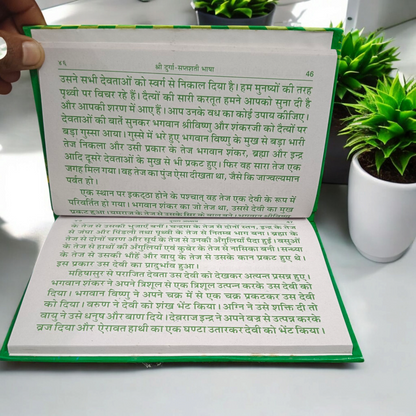 ४६ श्री दुर्गा-सप्तशती भाषा 46
उसने सभी देवताओं को स्वर्ग से निकाल दिया है। हम मनुष्यों की तरह
पृथ्वी पर विचर रहे हैं। दैत्यों की सारी करतूत हमने आपको सुना दी है
और आपकी शरण में आए हैं। आप उनके वध का कोई उपाय कीजिए।
देवताओं की बातें सुनकर भगवान श्रीविष्णु और शंकरजी को दैत्यों पर
बड़ा गुस्सा आया। गुस्से में भरे हुए भगवान विष्णु के मुख से बड़ा भारी
तेज निकला और उसी प्रकार के तेज भगवान शंकर, ब्रह्मा और इन्द्र
आदि दूसरे देवताओं के मुख से भी प्रकट हुए। फिर वह सारा तेज एक
जगह मिल गया। वह तेज का पुंज ऐसा दीखता था, जैसे कि जाज्वल्यमान
पर्वत हो।
एक स्थान पर इकट्ठा होने के पश्चात् वह तेज एक देवी के रूप में
परिवर्तित हो गया। भगवान शंकर का जो तेज था, उससे देवी का मुख
प्रकट हुआ। यमराज के तेज से उसके सिर के बाल बने। भगवान श्रीविष्णु
के तेज से उसकी भुजाएँ बनीं। चन्द्रमा के तेज से दोनों स्तन, इन्द्र के तेज
से जंघा और पिंडली तथा पृथ्वी के तेज से नितम्ब भाग बना। ब्रह्मा के
तेज से दोनों चरण और सूर्य के तेज से उनकी अँगुलियाँ पैदा हुईं। वसुओं
के तेज से हाथों की अँगुलियाँ एवं कुबेर के तेज से नासिका बनी। सन्ध्या
के तेज से उसकी भौंहें और वायु के तेज से उसके कान प्रकट हुए थे।
इस प्रकार उस देवी का प्रादुर्भाव हुआ।
महिषासुर से पराजित देवता उस देवी को देखकर अत्यन्त प्रसन्न हुए।
भगवान शंकर ने अपने त्रिशूल से एक त्रिशूल उत्पन्न करके उस देवी को
दिया। भगवान विष्णु ने अपने चक्र में से एक चक्र प्रकटकर उस देवी
को दिया। वरुण ने देवी को शंख भेंट किया। अग्नि ने उसे शक्ति दी तो
वायु ने उसे धनुष और बाण दिये। देवराज इन्द्र ने अपने वज्र से उत्पन्न करके
वज्र दिया और ऐरावत हाथी का एक घण्टा उतारकर देवी को भेंट किया।